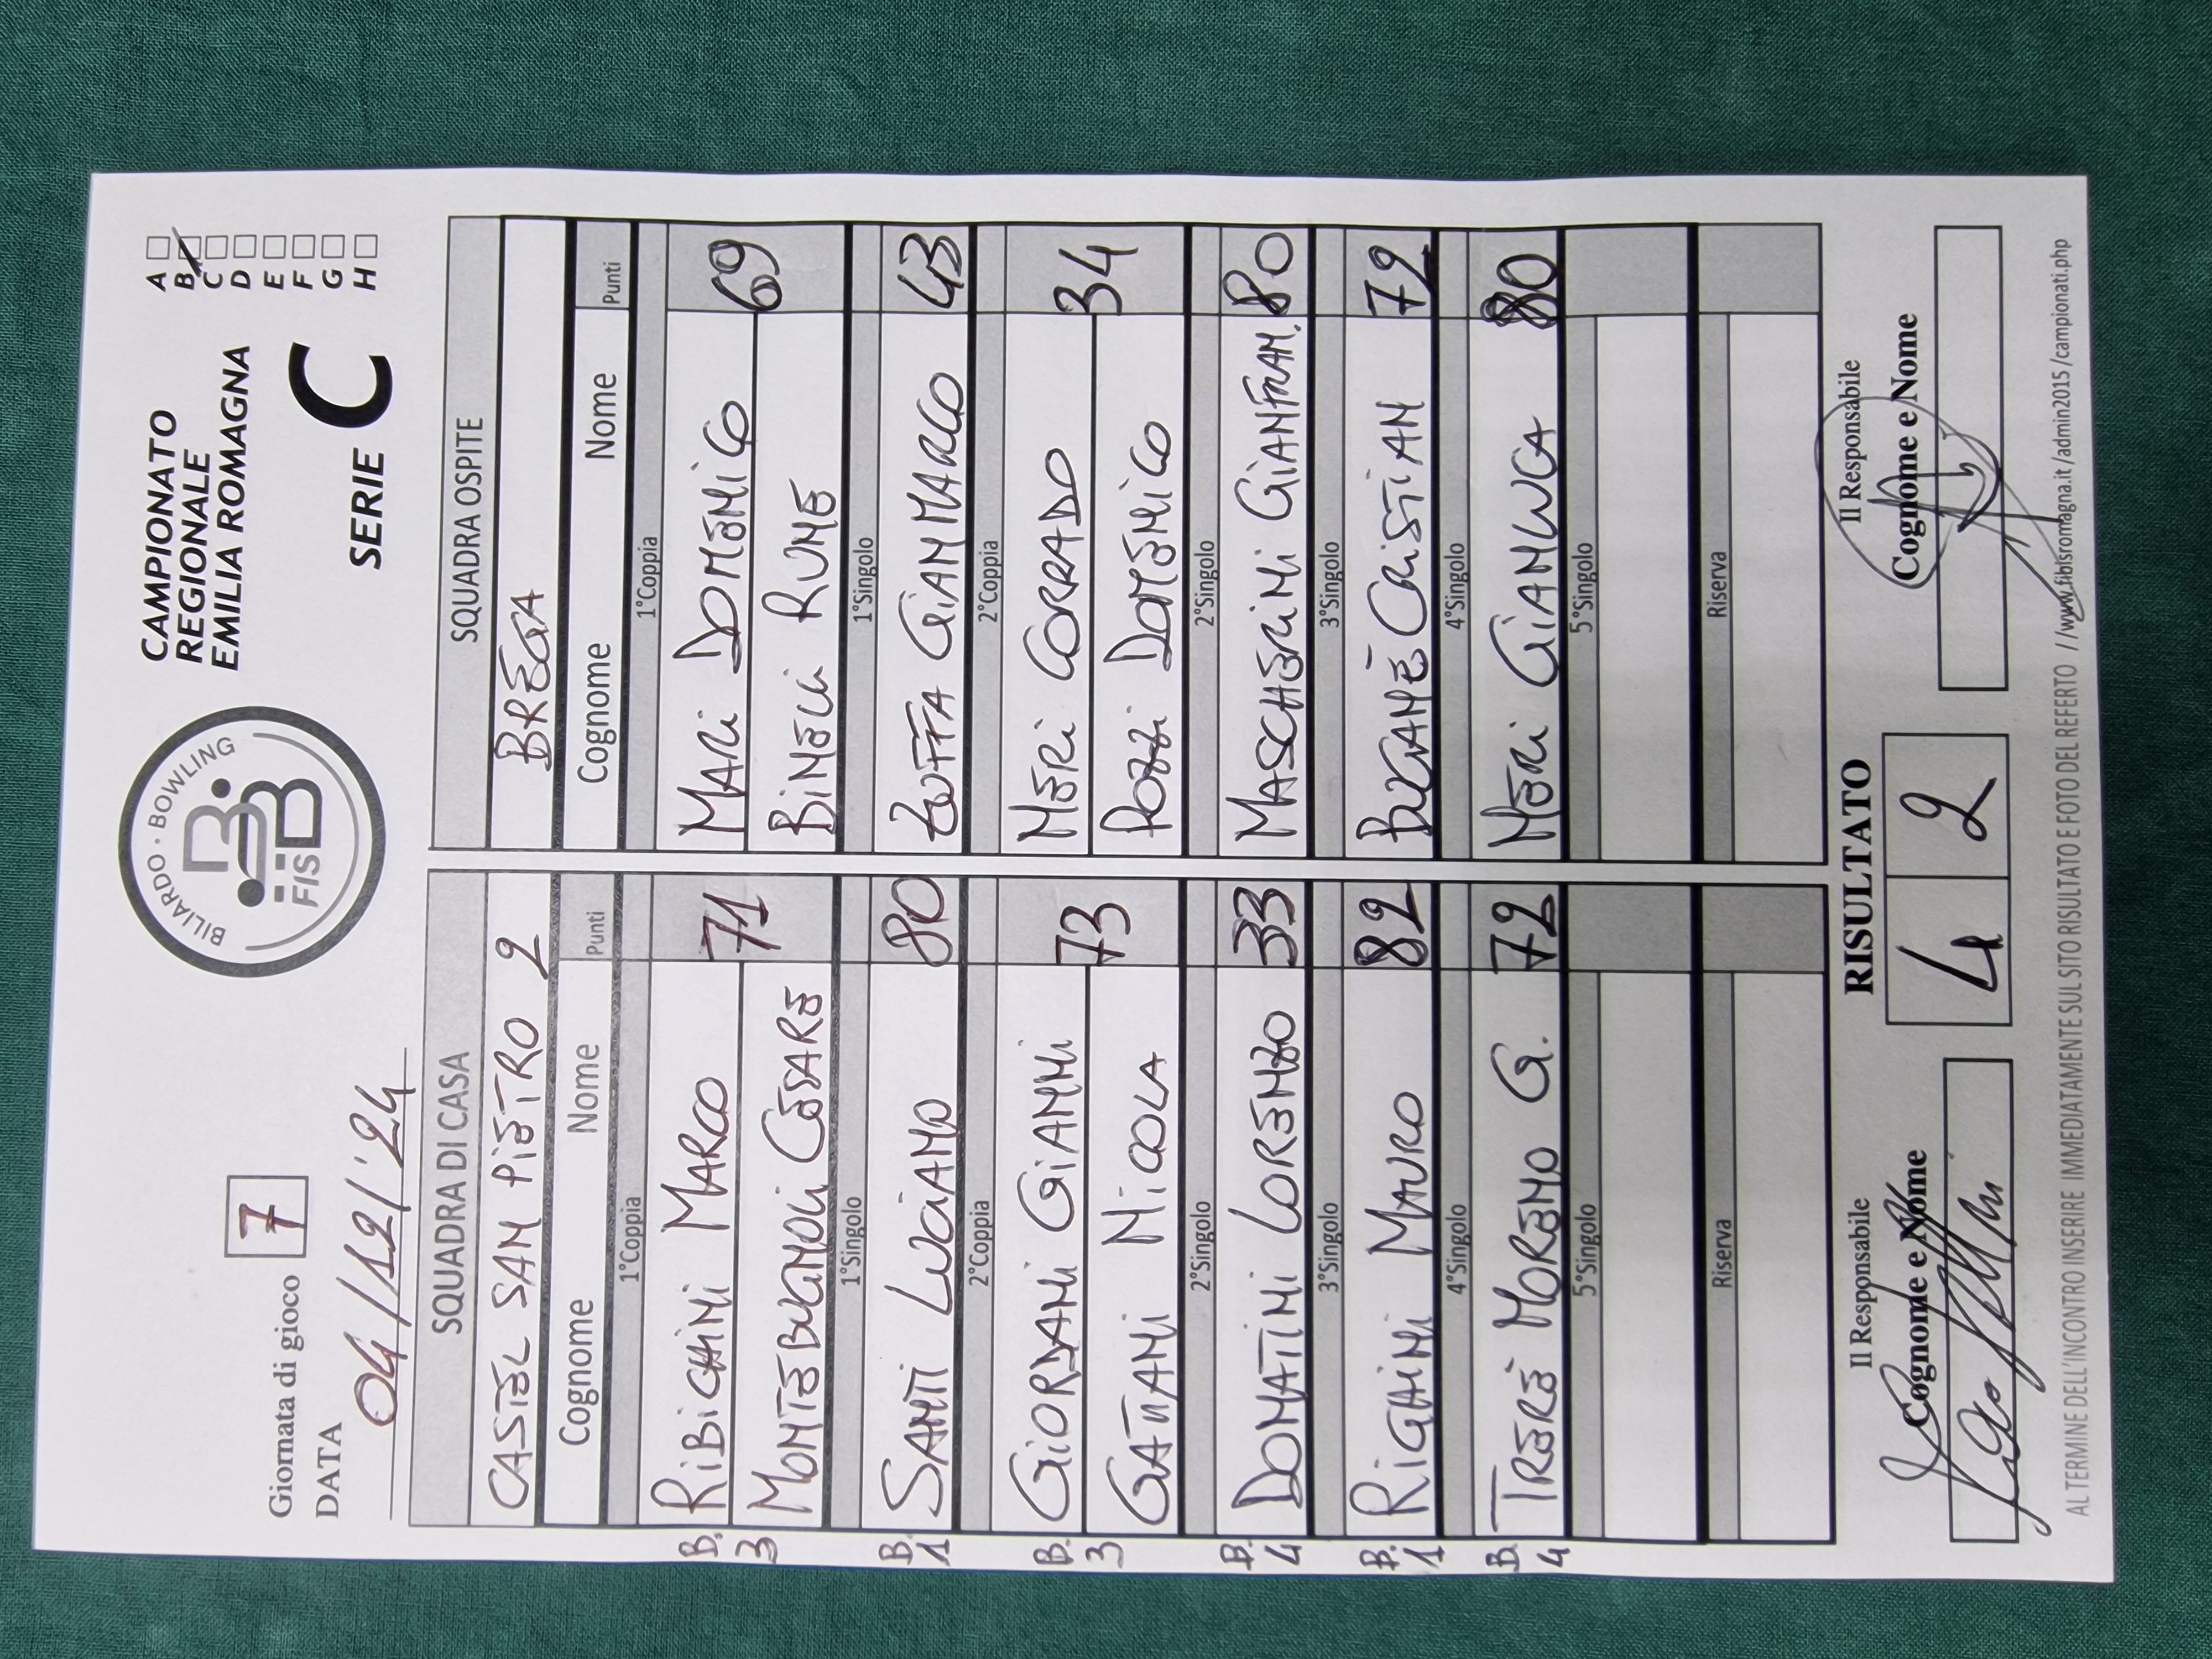 Giornata di gioco 7
DATA 04/12/'24
BILIARDO · BOWLING
FISBB
CAMPIONATO
REGIONALE
EMILIA ROMAGNA
SERIE C
A
B
C
D
E
F
G
H
SQUADRA DI CASA
CASTEL SAN PIETRO 2
Cognome Nome Punti
1°Coppia
B. 3
RIBICHINI MARCO
71
MONTEBUGNOLI CESARE
1°Singolo
B. 1
SANTI LUCIANO 80
2°Coppia
B. 3
GIORDANI GIANNI
73
GATTANI NICOLA
2°Singolo
B. 4
DONATINI LORENZO 33
3°Singolo
B. 1
RIGHINI MAURO 82
4°Singolo
B 4
TRERÈ MORENO G. 72
5°Singolo
Riserva
SQUADRA OSPITE
BREGA
Cognome Nome Punti
1°Coppia
MARI DOMENICO
69
BINECI RUME
1°Singolo
ZOFFA GIANMARCO 43
2°Coppia
NERI CORRADO
34
POZZI DOMENICO
2°Singolo
MASCHERINI GIANFRAN. 80
3°Singolo
BUGANÈ CRISTIAN 72
4°Singolo
NERI GIANLUCA 80
5°Singolo
Riserva
Il Responsabile
Cognome e Nome
RISULTATO
4 2
Il Responsabile
Cognome e Nome
AL TERMINE DELL'INCONTRO INSERIRE IMMEDIATAMENTE SUL SITO RISULTATO E FOTO DEL REFERTO //www.fibisromagna.it/admin2015/campionati.php